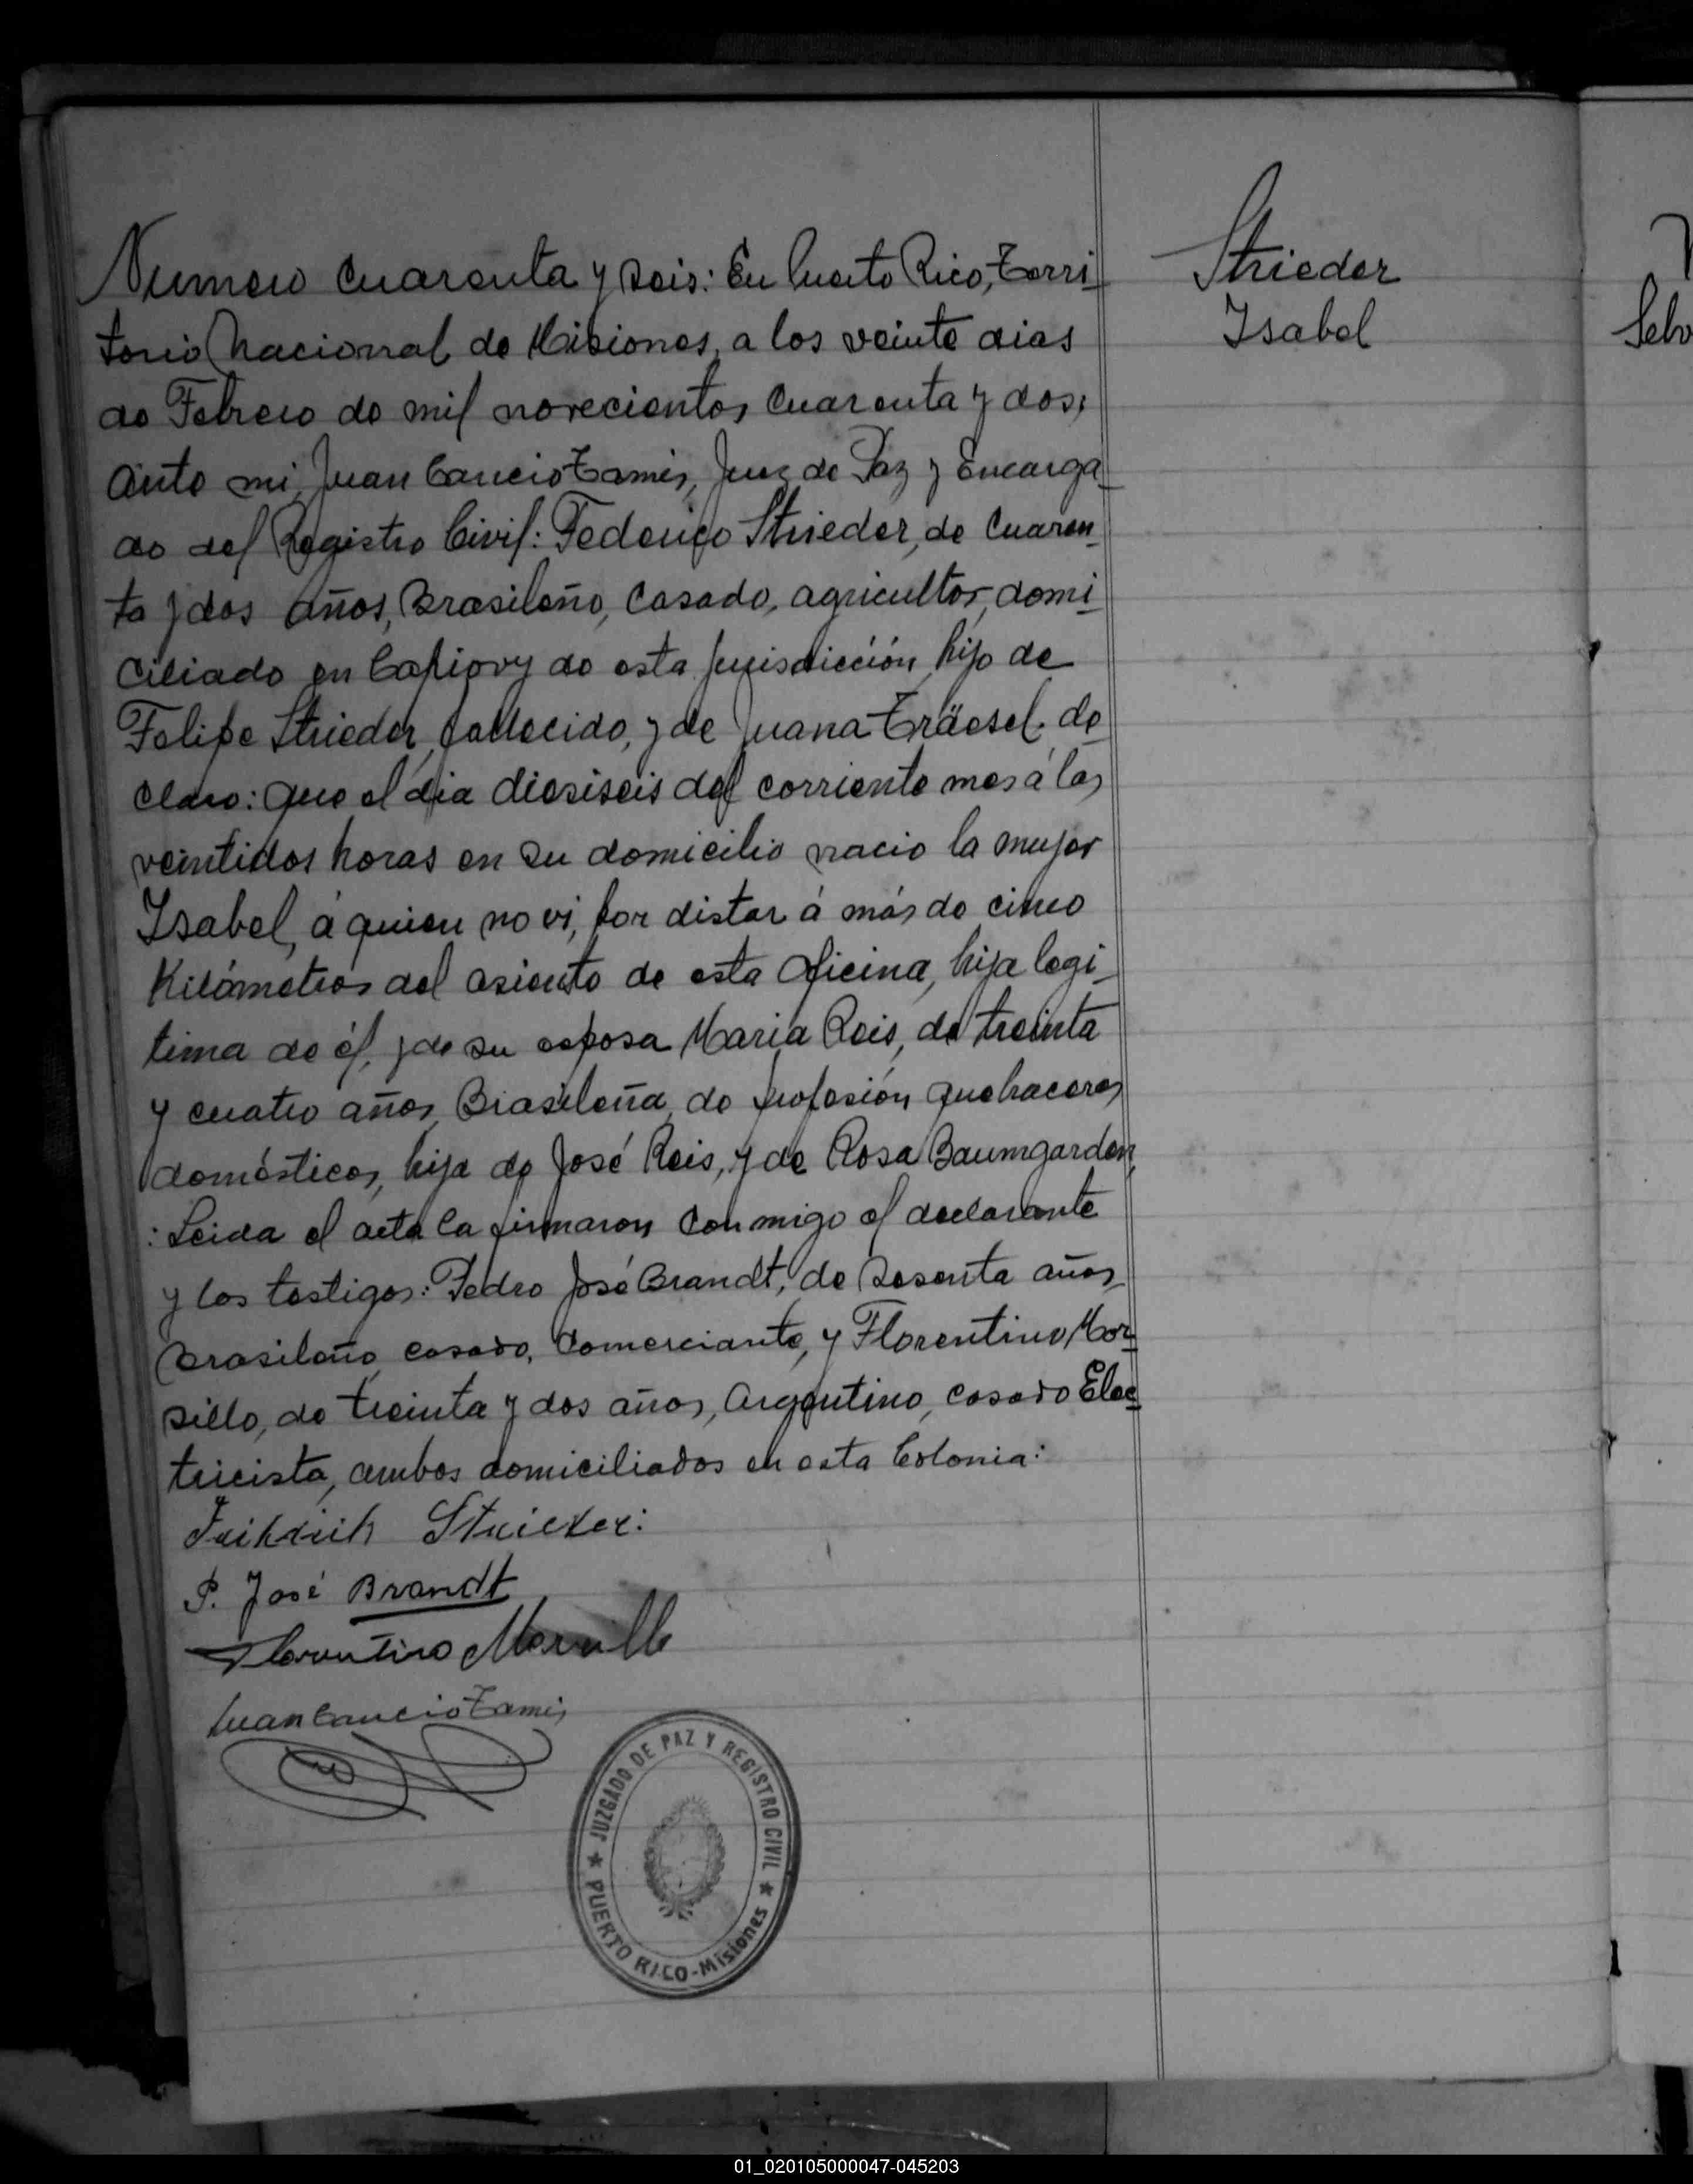 Numero cuarenta y seis: En Puerto Rico, Terri-
torio Nacional de Misiones, a los veinte dias
de Febrero de mil novecientos cuarenta y dos,
ante mi, Juan Cancio Tamis, Juez de Paz y Encarga-
do del Registro Civil: Federico Strieder, de cuaren-
ta y dos años, Brasileño, casado, agricultor, domi-
ciliado en Capiovy de esta jurisdicción, hijo de
Felipe Strieder, fallecido, y de Juana Träesel, de
claro: que el dia diesiseis del corriente mes á las
veintidos horas en su domicilio nacio la mujer
Isabel, á quien no vi, por distar á más de cinco
Kilómetros del asiento de esta Oficina, hija legi-
tima de él, y de su esposa Maria Reis, de treinta
y cuatro años, Brasileña, de profesión quehaceres
domésticos, hija de José Reis, y de Rosa Baumgarden,
: Leida el acta la firmaron conmigo el declarante
y los testigos: Pedro José Brandt, de sesenta años,
Brasileño, casado, comerciante, y Florentino Mor-
sillo, de treinta y dos años, Argentino, casado Elec-
tricista, ambos domiciliados en esta Colonia:
Strieder:
P. José Brandt
Florentino
Juan Cancio Tamis
JUZGADO DE PAZ Y REGISTRO CIVIL
★ PUERTO RICO-Misiones ★
Strieder
Isabel
01_020105000047-045203